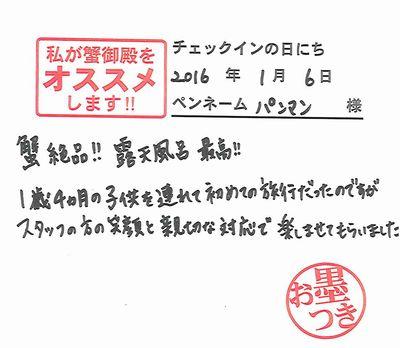 私が蟹御殿を
オススメ
します!!
チェックインの日にち
2016 年 1月 6日
ペンネーム パンマン 様
蟹絶品!! 露天風呂 最高!!
1歳4ヵ月の子供を連れて初めての旅行だったのですが
スタッフの方の笑顔と親切な対応で 楽しませてもらいました
お墨
つき